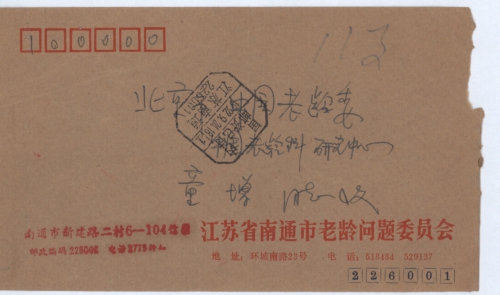 100000
北京 中国老龄委
中国老龄科研中心
童增 收
南通市新建路二村6—104信箱
邮政编码 226006 电话
江苏省南通市老龄问题委员会
地 址：环城南路23号 电 话：518484 529137
226001